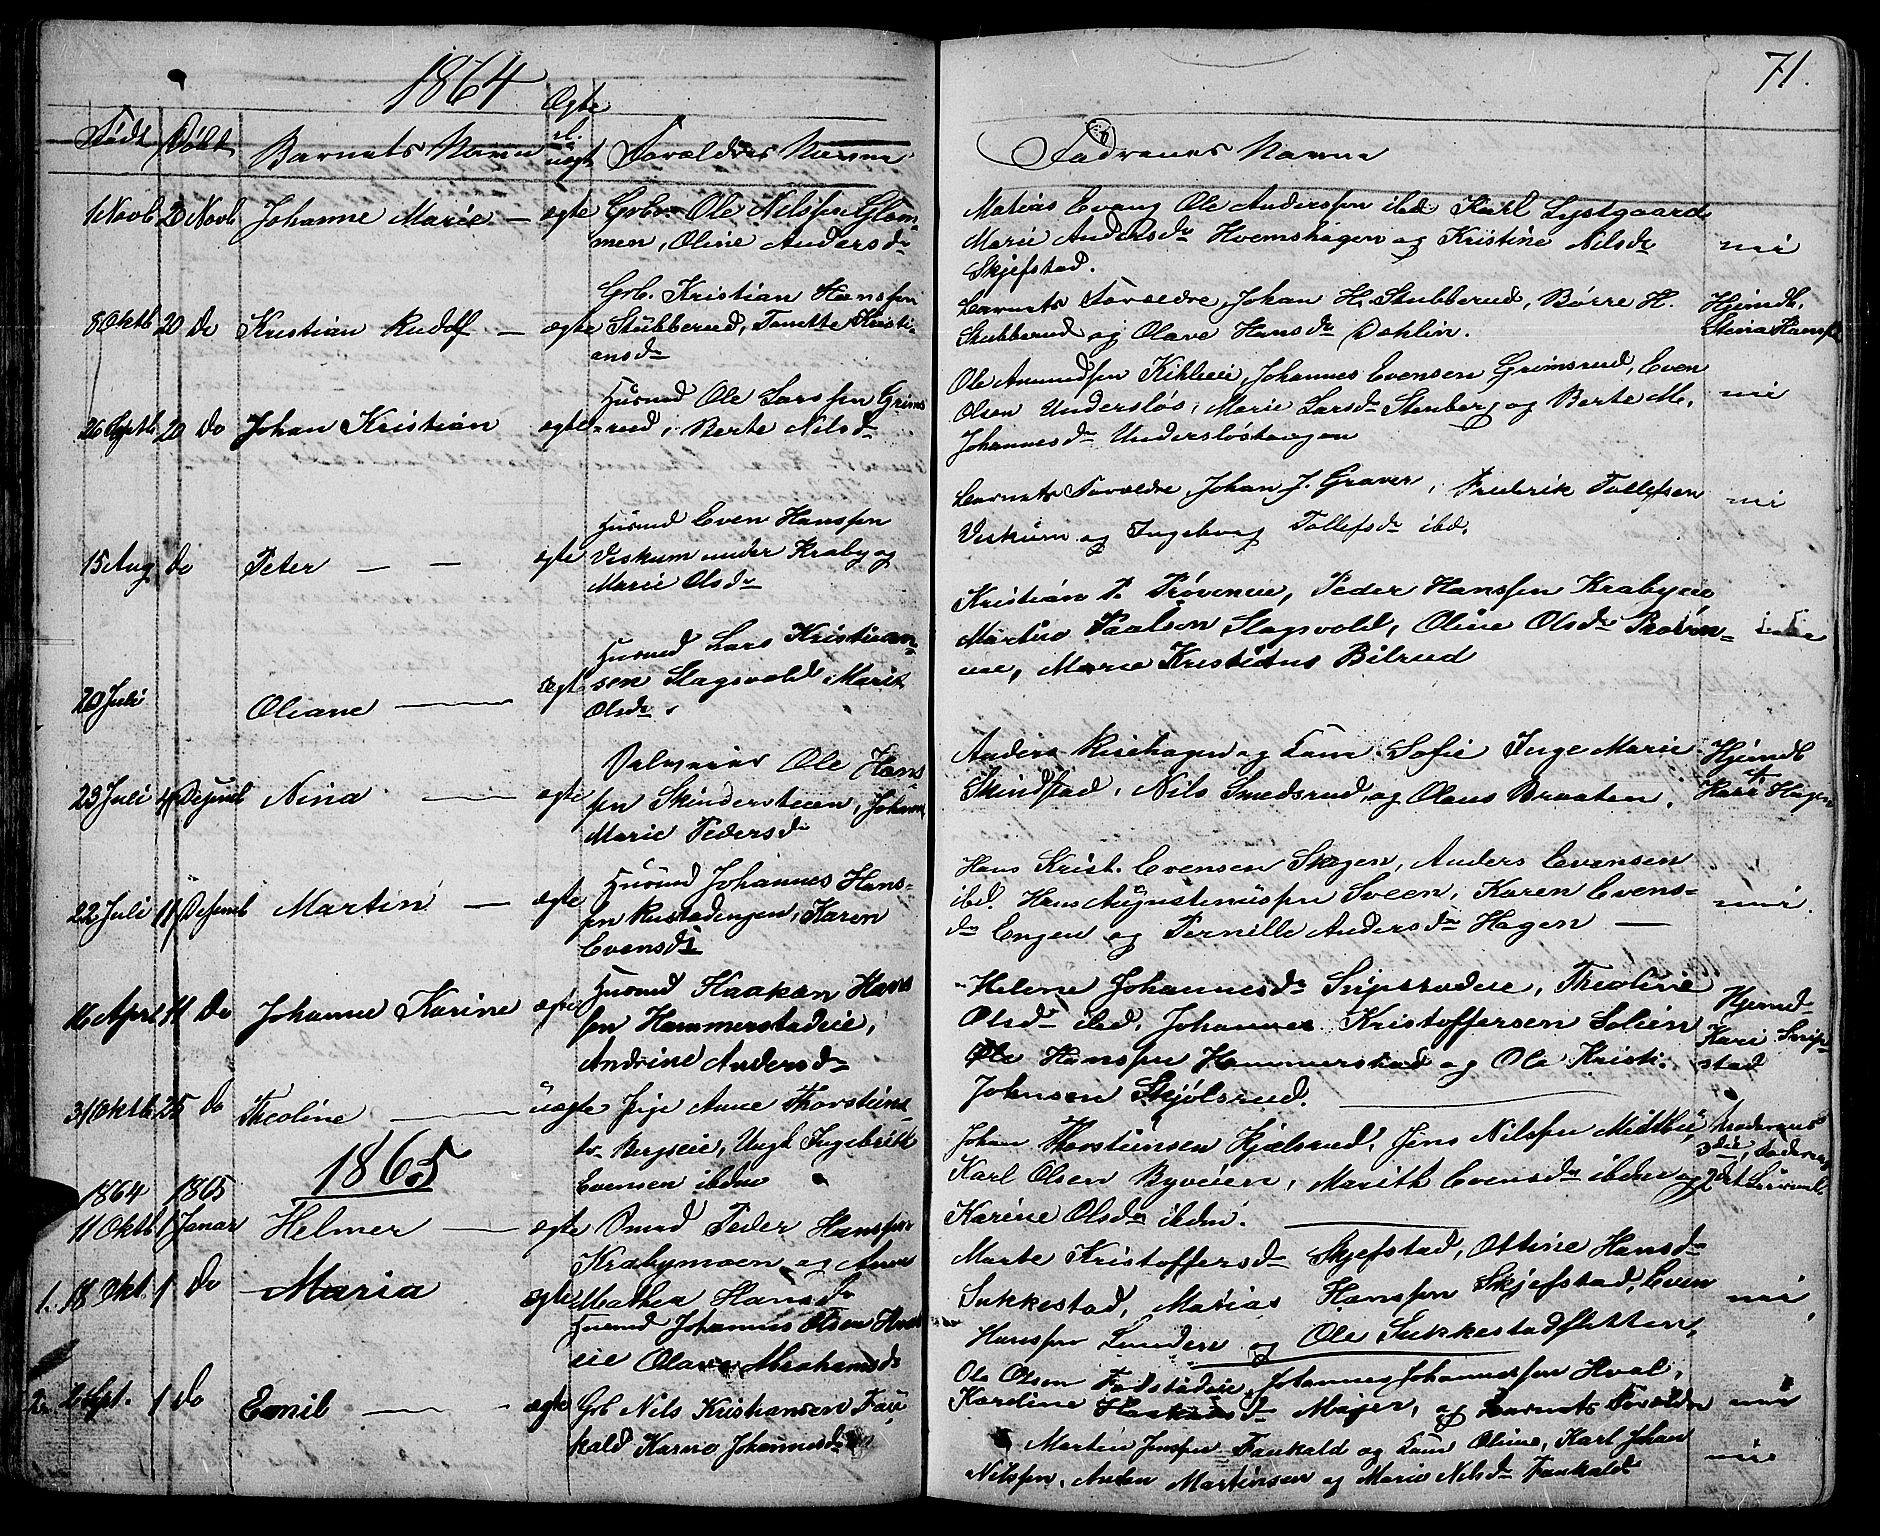 1864
Ægte
Født Døbt Barnets Navn el. uægt Forældres Navne
1 Novb 20 Novb Johanne Marie — ægte Grbr. Ole Nilssen Glom-
men, Oline Andersdr
8 Oktb 20 Do Kristian Rudolf — ægte Grb. Kristian Hanssen
Stubberud, Tonette Kristi-
ansdr
26 Septb 20 Do Johan Kristian ægte Husmd Ole Larssen Grims
rud, Berte Nilsdr
15 Aug Do Peter — — ægte Husmd Even Hanssen
Viskum under Kraby og
Marie Olsdr
20 Juli Oliane — ægte Husmd Lars Kristian-
sen Slagsvold Marie
Olsdr.
23 Juli 4 Desemb Nina — ægte Ole Hans
sen Skinderveien, Johanne
Marie Pedersdr
22 Juli 11 Desemb Martin — ægte Husmd Johannes Hans-
sen Rustadengen, Karen
Evensdr
16 April 11 Do Johanne Karine ægte Husmd Haakon Hans
sen Hammerstadeie,
Andrine Andersdr
31 Oktb 25 Do Theoline — uægte Pige Anne Thorstens
dr Bergseie, Ungk Ingebrikt
Evensen ibdm
1865
1864 1865
11 Oktb 1 Januar Helmer — ægte Peder Hanssen
Krabymoen og Anne
Mathea Hansdr
1. 18 Okt. 1 Do Maria ægte Husmd Johannes Olsen Hval
eie Olava Abrahamsdr
2. 2 Sept. 1 Do Emil — — ægte Grb Nils Kristiansen Fau
kald Karen Johannesdr
71.
Faddernes Navne
Matias Evang Ole Anderssen ibd Karl Lystgaard
Marie Andersdr Hvemshagen og Kristine Nilsdr
Skjefstad.
nei
Barnets Forældre, Johan H. Stubberud, Børre H.
Stubberud og Olave Hansdr Dahlin.
Hjemdb.
Stina Hanssen
Ole Amundsen Kihleie, Johannes Evensen Grimsrud, Even
Olsen Undersløs, Marie Larsdr Stenberg og Berte M.
Johannesdr Undersløstangen
nei
Barnets Forældre, Johan J. Graver, Frederik Tollefsen
Viskum og Ingeborg Tollefsdr ibd.
nei
Kristian P. Prøveneie, Peder Hanssen Krabyeie
Martin Paalsen Slagsvold, Oline Olsdr Prøven-
eie, Marie Kristians Bilrud
Anders Risehagen og Kone Sofie Inge Marie
Skindstad, Nils Smedsrud, og Olaus Braaten.
Hjemdb
Kari Hagen
Hans Krist. Evensen Skogen, Anders Evensen
ibd. Hans Augustinussen Sveen, Karen Evens-
dr Engen og Pernille Andersdr Hagen —
nei.
Helene Johannesdr Snipstadeie, Theoline
Olsdr ibd. Johannes Kristoffersen Solien
Ole Hanssen Hammerstad og Ole Kristi:
Johnsen Skjølsrud.
Hjemd-
Kari Snip-
stad
Johan Thorstensen Hjelsrud, Jens Nilssen Midtlie,
Karl Olsen Byveien, Marith Evensdr ibdm og
Karine Olsdr ibdm.
Marte Kristoffersdr Skjefstad, Ottine Hansdr
Sukkestad, Marias Hanssen Skjefstad, Even
Hanssen Lunden og Ole Sukkestadfletten,
nei
Ole Olsen Fodstadeie, Johannes Johannessen Hval,
Kardine Haakensdr Majer, og Barnets Forældre
nei
Martin Jenssen Faukald og Kone Oline, Karl Johan
Nilssen, Anders Martinsen og Marie Nilsdr Faukald
nei